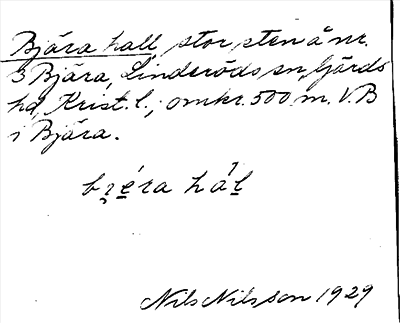 Bjära hall, stor sten å nr.
3 Bjära, Linderöds sn, Gärds
hd, Krist. l.; omkr. 500 m. V. B
i Bjära.
Nils Nilsson 1929